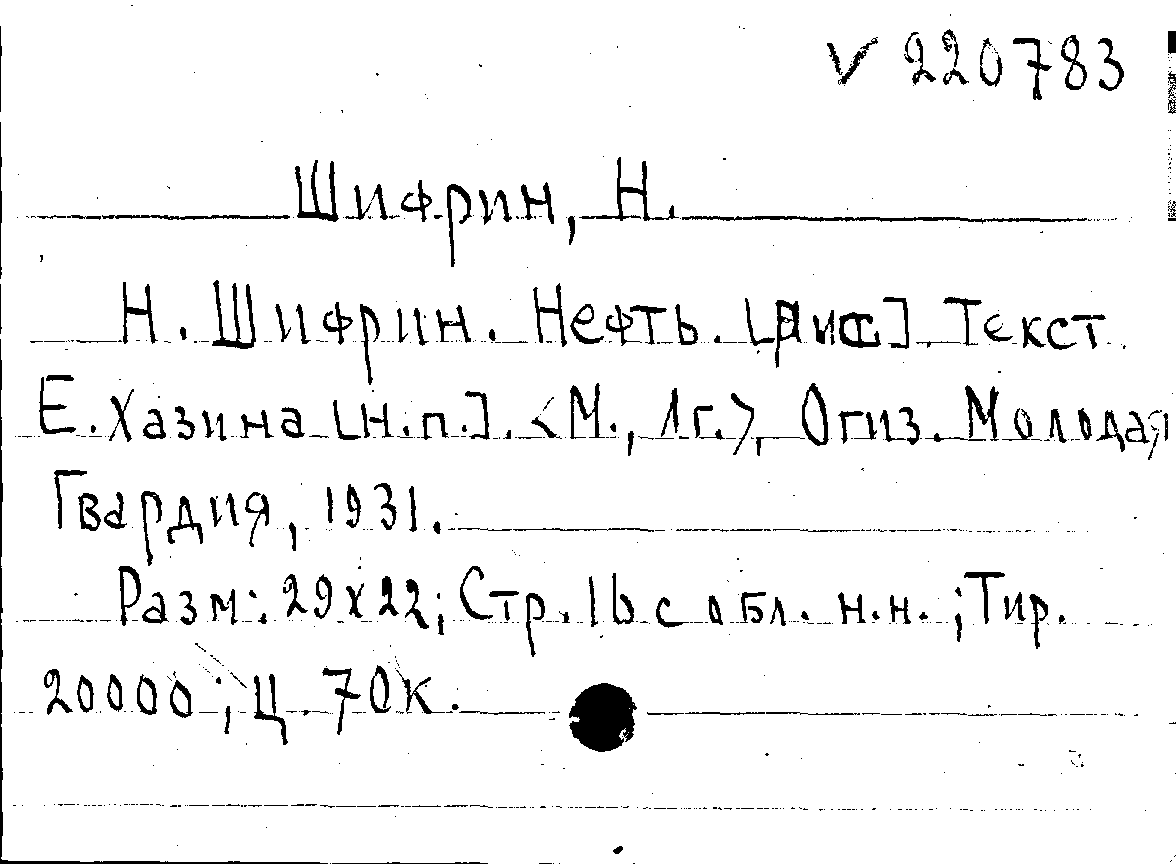 V 220783
Шифрин, Н.
Н. Шифрин. Нефть. [Рис]. Текст
Е. Хазина [н.п.]. <М., Лг.>, Огиз. Молодая
Гвардия, 1931.
Разм: 29х22; Стр. 16 с обл. н.н.; Тир.
20000; Ц. 70к.